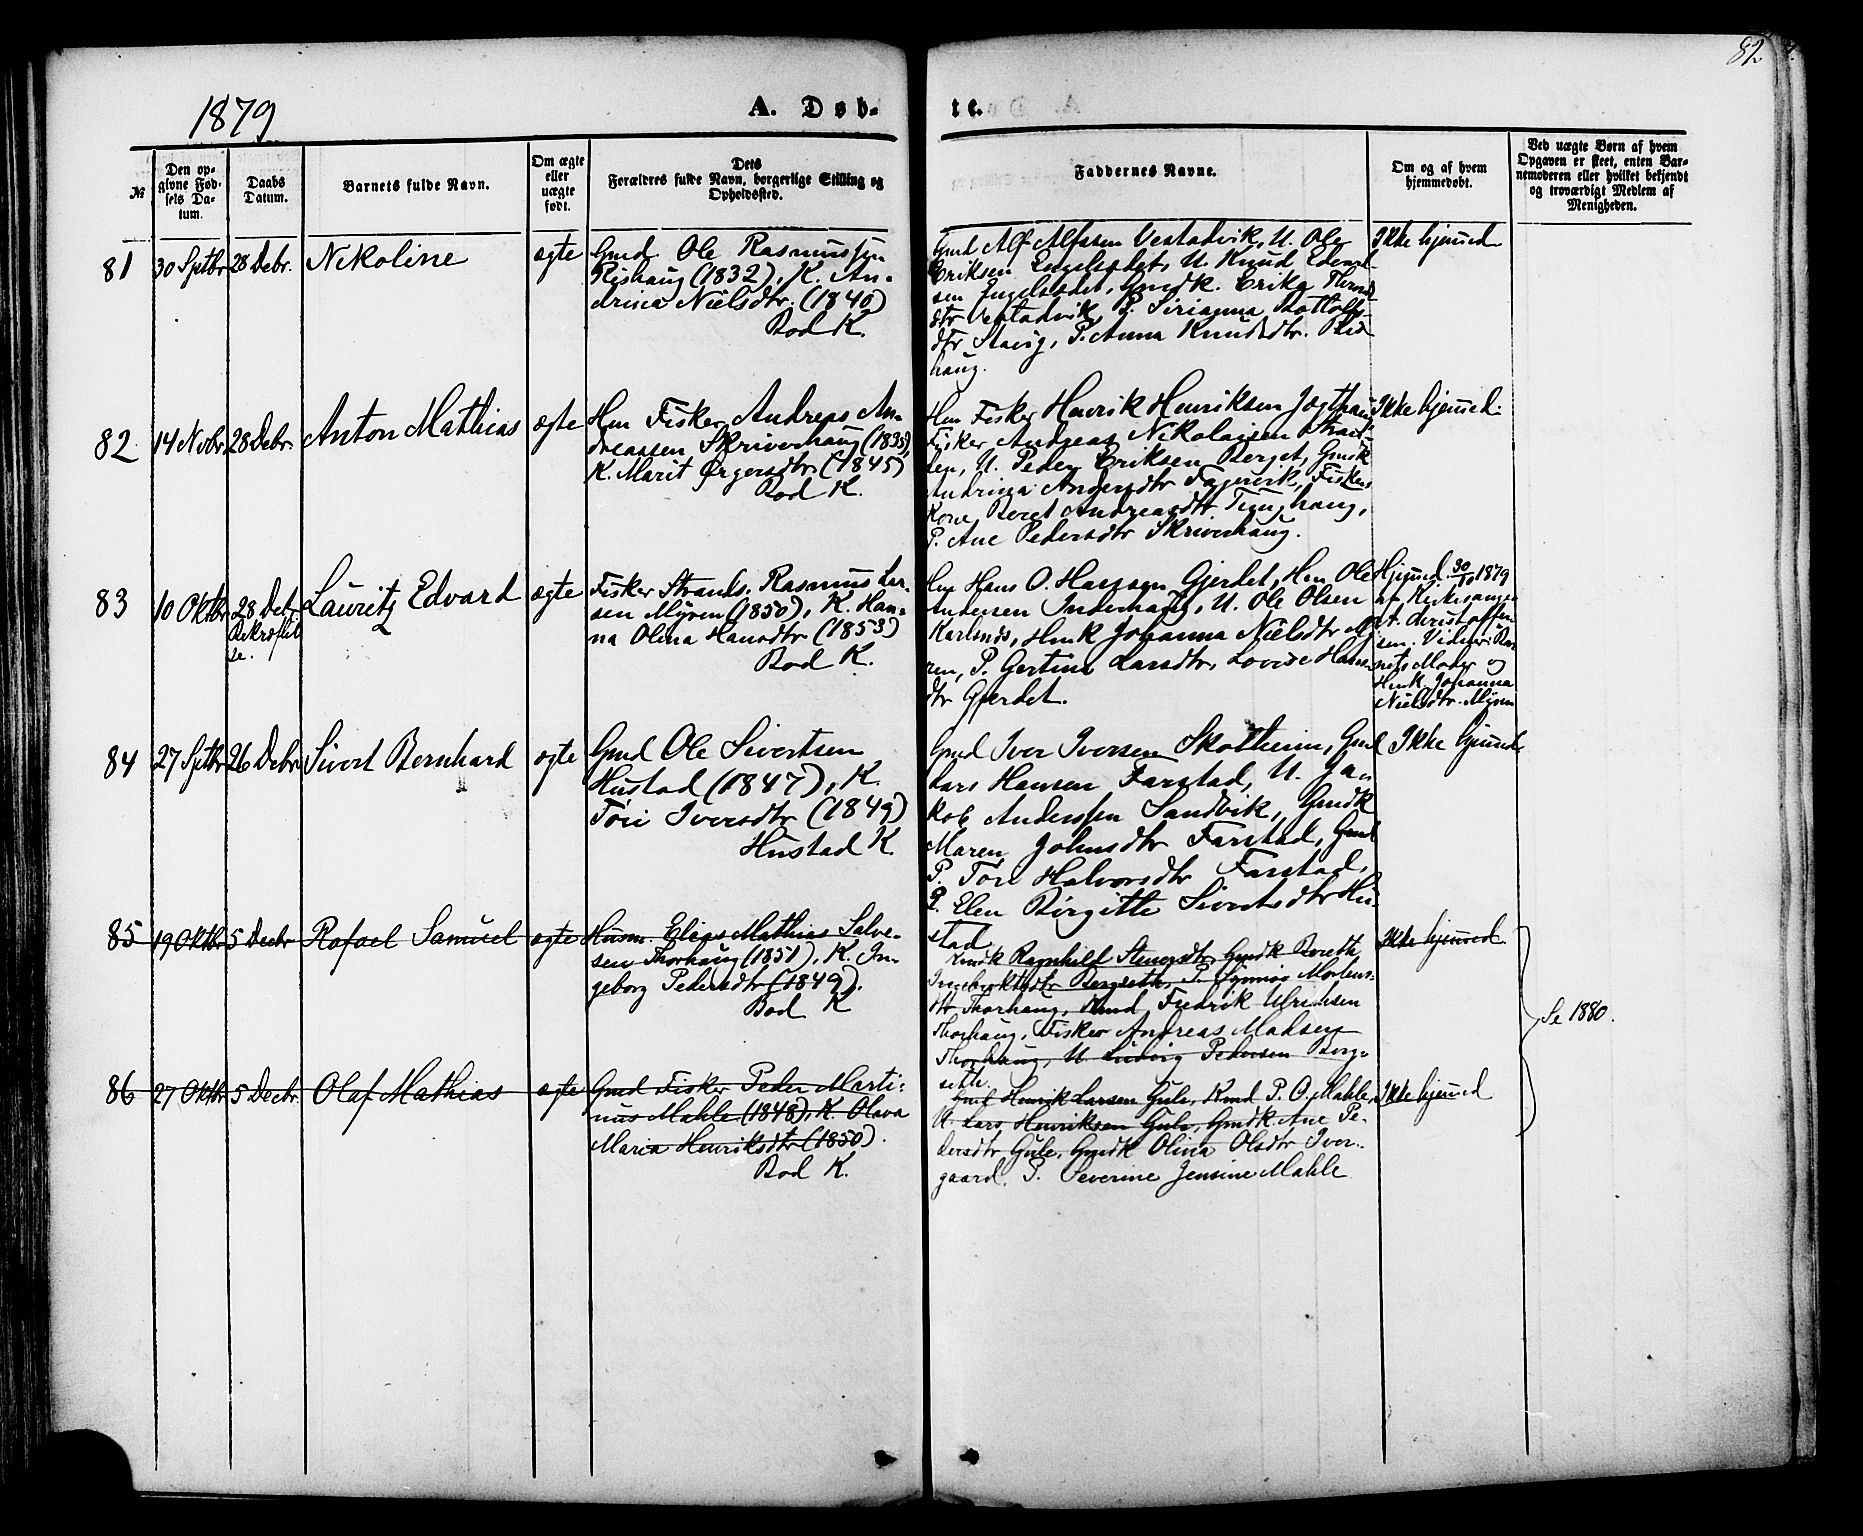 82
1879
A. Døb-
te.
№
Den op-
givne Fød-
sels Da-
tum.
Daabs
Datum.
Barnets fulde Navn.
Om ægte
eller
uægte
født.
Dets
Forældres fulde Navn, borgerlige Stilling og
Opholdssted.
Faddernes Navne.
Om og af hvem
hjemmedøbt.
Ved uægte Børn af hvem
Opgaven er skeet, enten Bar-
nemoderen eller hvilket bekjendt
og troværdigt Medlem af
Menigheden.
81 30 Sptbr 28 Debr. Nikoline ægte
Gmd. Ole Rasmussen
Rishaug (1832), K. An-
drina Nielsdtr. (1840)
Bod K.
Gmd Alf Alfssen Vestadvik, U. Ole
Eriksen U. Knud Edvard-
sen Gmdk. Erika
dtr Vestadvik, P. Sirianna
dtr Stavig, P. Anna Knudsdtr. Ris-
haug.
Ikke hjemmed.
82 14 Novbr. 28 Debr. Anton Mathias ægte
Hm Fisker Andreas An-
dreassen Skriverhaug (1835),
K. Marit Ørgersdtr. (1845)
Bod K.
Hm Fisker Henrik Henriksen Jægthaug
Fisker Andreas Nikolaisen Stran-
den, U. Peder Eriksen Berget, Gmdk
Andrina Andersdtr Fagervik, Fiskers
Kone Beret Andreasdtr Tunghaug,
P. Ane Pedersdtr Skriverhaug.
Ikke hjemmed.
83 10 Oktbr 28 Debr Lauritz Edvard ægte
Bekræftel-
se.
Fisker Strands. Rasmus Lar-
sen Myren (1850), K. Han-
na Olina Hansdtr (1853)
Bod K.
Hm Hans O. Hansen Gjerdet, Hm Ole
Andersen Inderhaug, U. Ole Olsen
Karlsnes, Hmk Johanna Nielsdtr My-
ren, P. Gjertine Larsdtr, Lovise Hans-
dtr Gjerdet.
Hjemmed 30/10 1879
af Kirkesanger
A. Christoffer-
sen. Vidner: Bar-
nets Moder og
Hmk Johanna
Nielsdtr. Myren
84 27 Sptbr 26 Debr Sivert Bernhard ægte
Gmd Ole Sivertsen
Hustad (1847), K.
Tøri Iversdtr (1849)
Hustad K.
Gmd Iver Iversen Skotheim, Gmd
Lars Hansen Farstad, U. Ja-
kob Anderssen Sandvik, Gmdk
Maren Johnsdtr Farstad, Gmd
P. Tøri Halvorsdtr Farstad,
P. Elen Birgitte Sivertsdtr Hu-
stad
Ikke hjemmed.
85 19 Oktbr 5 Decbr Rafael Samuel ægte
Husm. Elias Mathias Salve-
sen Thorhaug (1851), K. In-
geborg Pedersdtr (1849).
Bod K
Kmdk Ragnhild Gmdk Berethe
Ingebrigtsdtr Bergsethe, P. Synnøv Mortens-
dtr Thorhaug, Kmd Fredrik Ulrichsen
Thorhaug, Fisker Andreas Madsen
Thorhaug, U Ludvig Pedersen Berg-
seth.
Ikke hjemmed.
Se 1880.
86 27 Oktbr 5 Decbr. Olaf Mathias ægte
Gmd Fisker Peder Marti-
nus Mahle (1848), K. Olava
Maria Henriksdtr (1850).
Bod K.
Gmd Henrik Larsen Gule, Kmd P. O. Mahle,
U. Lars Henriksen Gule, Gmdk Ane Pe-
dersdtr Gule, Gmdk Olina Olsdtr Iver-
gaard, P. Severine Jensine Mahle
Ikke hjemmed